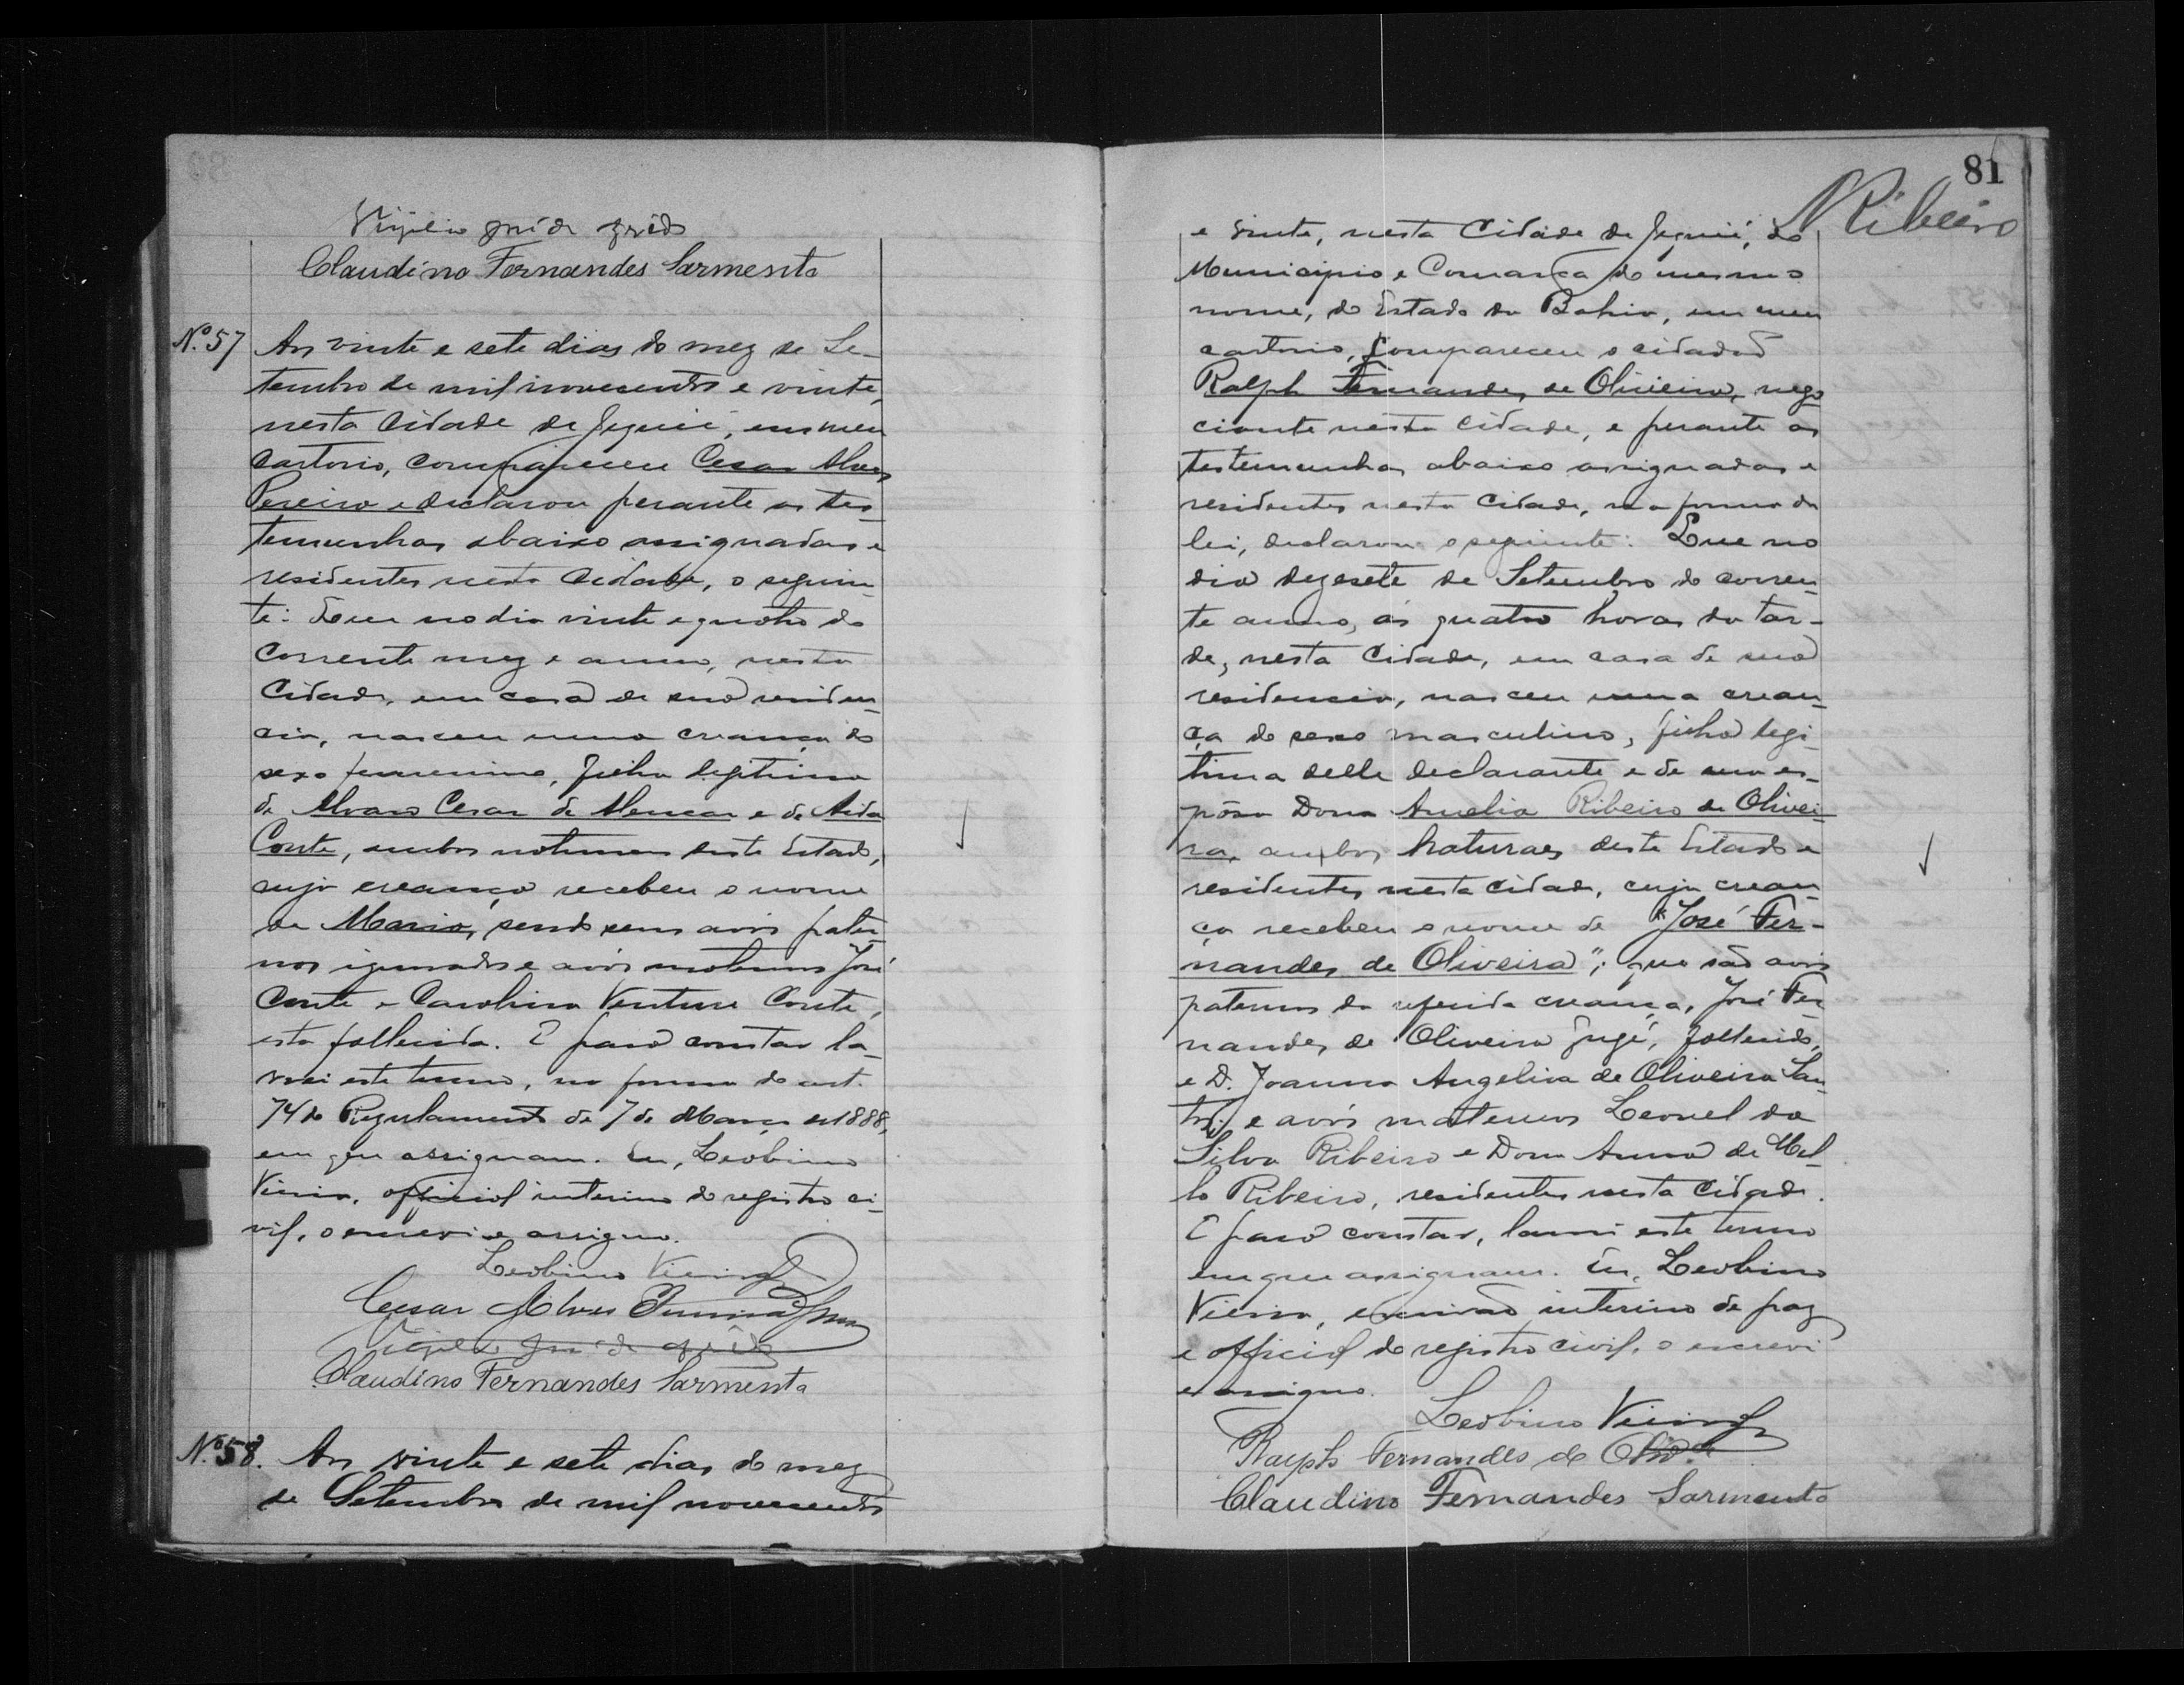 Claudino Fernandes Sarmento
Nº 57 Aos vinte e sete dias do mez de Se-
tembro de mil novecentos e vinte,
nesta Cidade de Jequié, em meu
cartorio, compareceu Cesar Alves
Pereira e declarou perante as tes-
temunhas abaixo assignadas e
residentes nesta Cidade, o seguin-
te: Que no dia vinte e quatro do
corrente mez e anno, nesta
Cidade, em casa de sua residen-
cia, nasceu uma creança do
sexo femenino, filha legitima
de Alvaro Cesar de Alencar e de Aida
Conte, ambos naturaes deste Estado,
cuja creança recebeu o nome
de Maria, sendo seus avós pater-
nos ignorados e avós maternos José
Conte e Carolina Ventura Conte,
esta fallecida. E para constar la-
vrei este termo, na forma do art.
74 do Regulamento de 7 de Março de 1888,
em que assignam. Eu, Leobino
Vieira, official interino do registro ci-
vil, o escrevi e assigno.
Leobino Vieira
Cesar Alves
Claudino Fernandes Sarmento
Nº 58. Aos vinte e sete dias do mez
de Setembro de mil novecentos
81
Ribeiro
e vinte, nesta Cidade de Jequié, do
Municipio e Comarca do mesmo
nome, do Estado da Bahia, em meu
cartorio, compareceu o cidadão
Ralph Fernandes de Oliveira, nego
ciante nesta Cidade, e perante as
testemunhas abaixo assignadas e
residentes nesta Cidade, na forma da
lei, declarou o seguinte: Que no
dia dezesete de Setembro do corren-
te anno, ás quatro horas da tar-
de, nesta Cidade, em casa de sua
residencia, nasceu uma crean-
ça do sexo masculino, filha legi-
tima delle declarante e de sua es-
pôsa Dona Amelia Ribeiro de Olivei-
ra, ambos naturaes deste Estado e
residentes nesta cidade, cuja crean-
ça recebeu o nome de "José Fer-
nandes de Oliveira"; que são avós
paternos da referida creança, José Fer-
nandes de Oliveira fallecido,
e D. Joanna Angelica de Oliveira San-
tos; e avós maternos Leonel da
Silva Ribeiro e Dona Anna de Mel-
lo Ribeiro, residentes nesta Cidade.
E para constar, lavrei este termo
em que assignam. Eu, Leobino
Vieira, escrivão interino de paz
e official do registro civil, o escrevi
e assigno.
Leobino Vieira
Ralph Fernandes de Olivª
Claudino Fernandes Sarmento